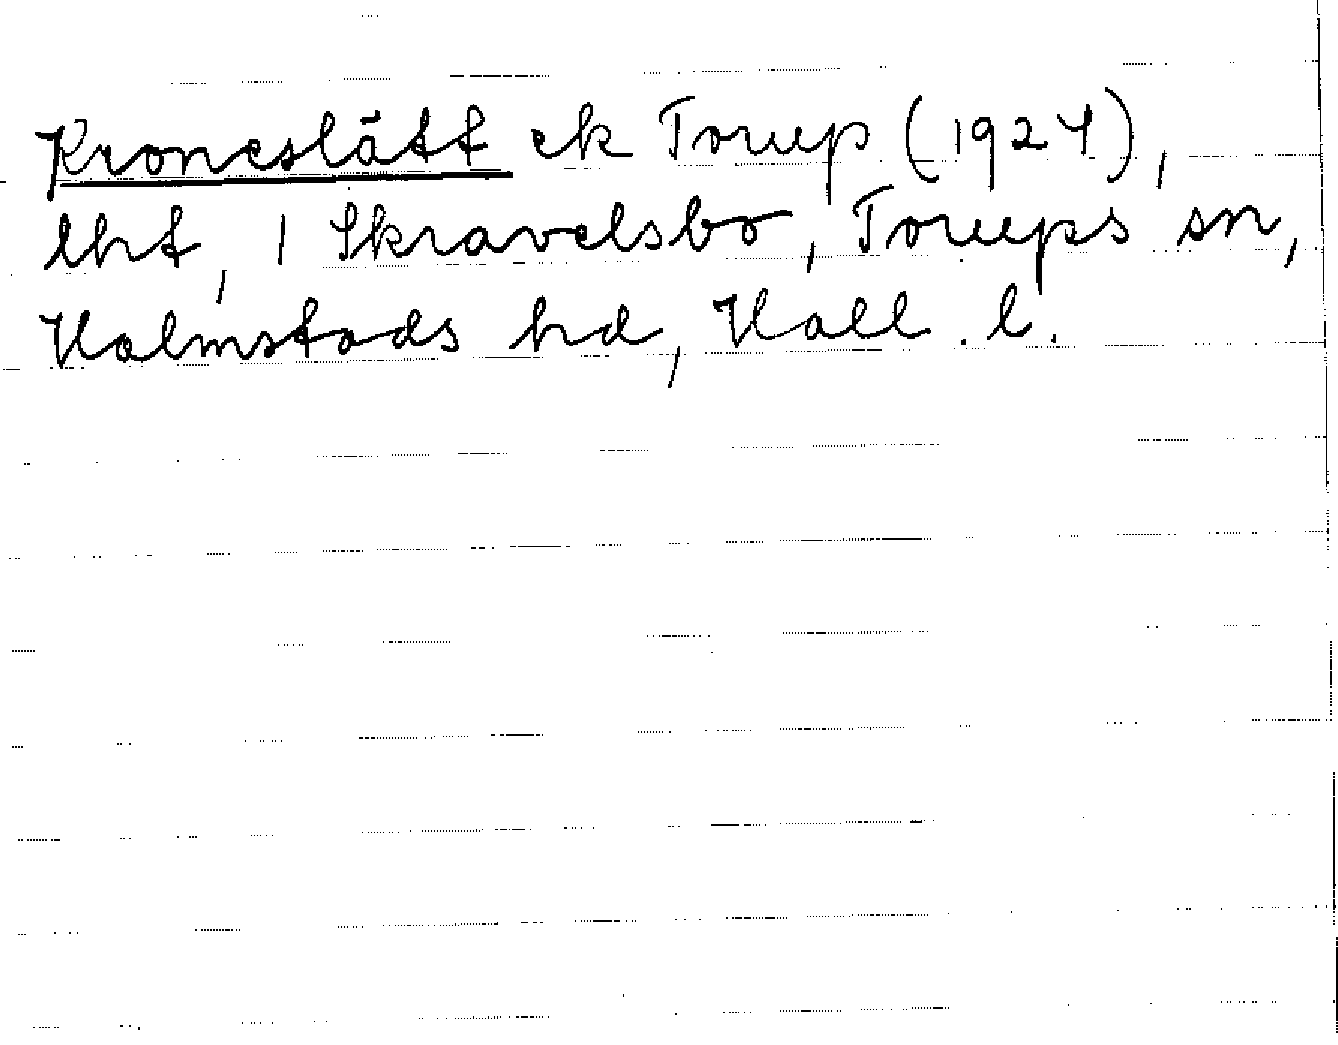 Kroneslätt ek Torup (1927),
lht, 1 Skravelsbo, Torups sn,
Halmstads hd, Hall. l.